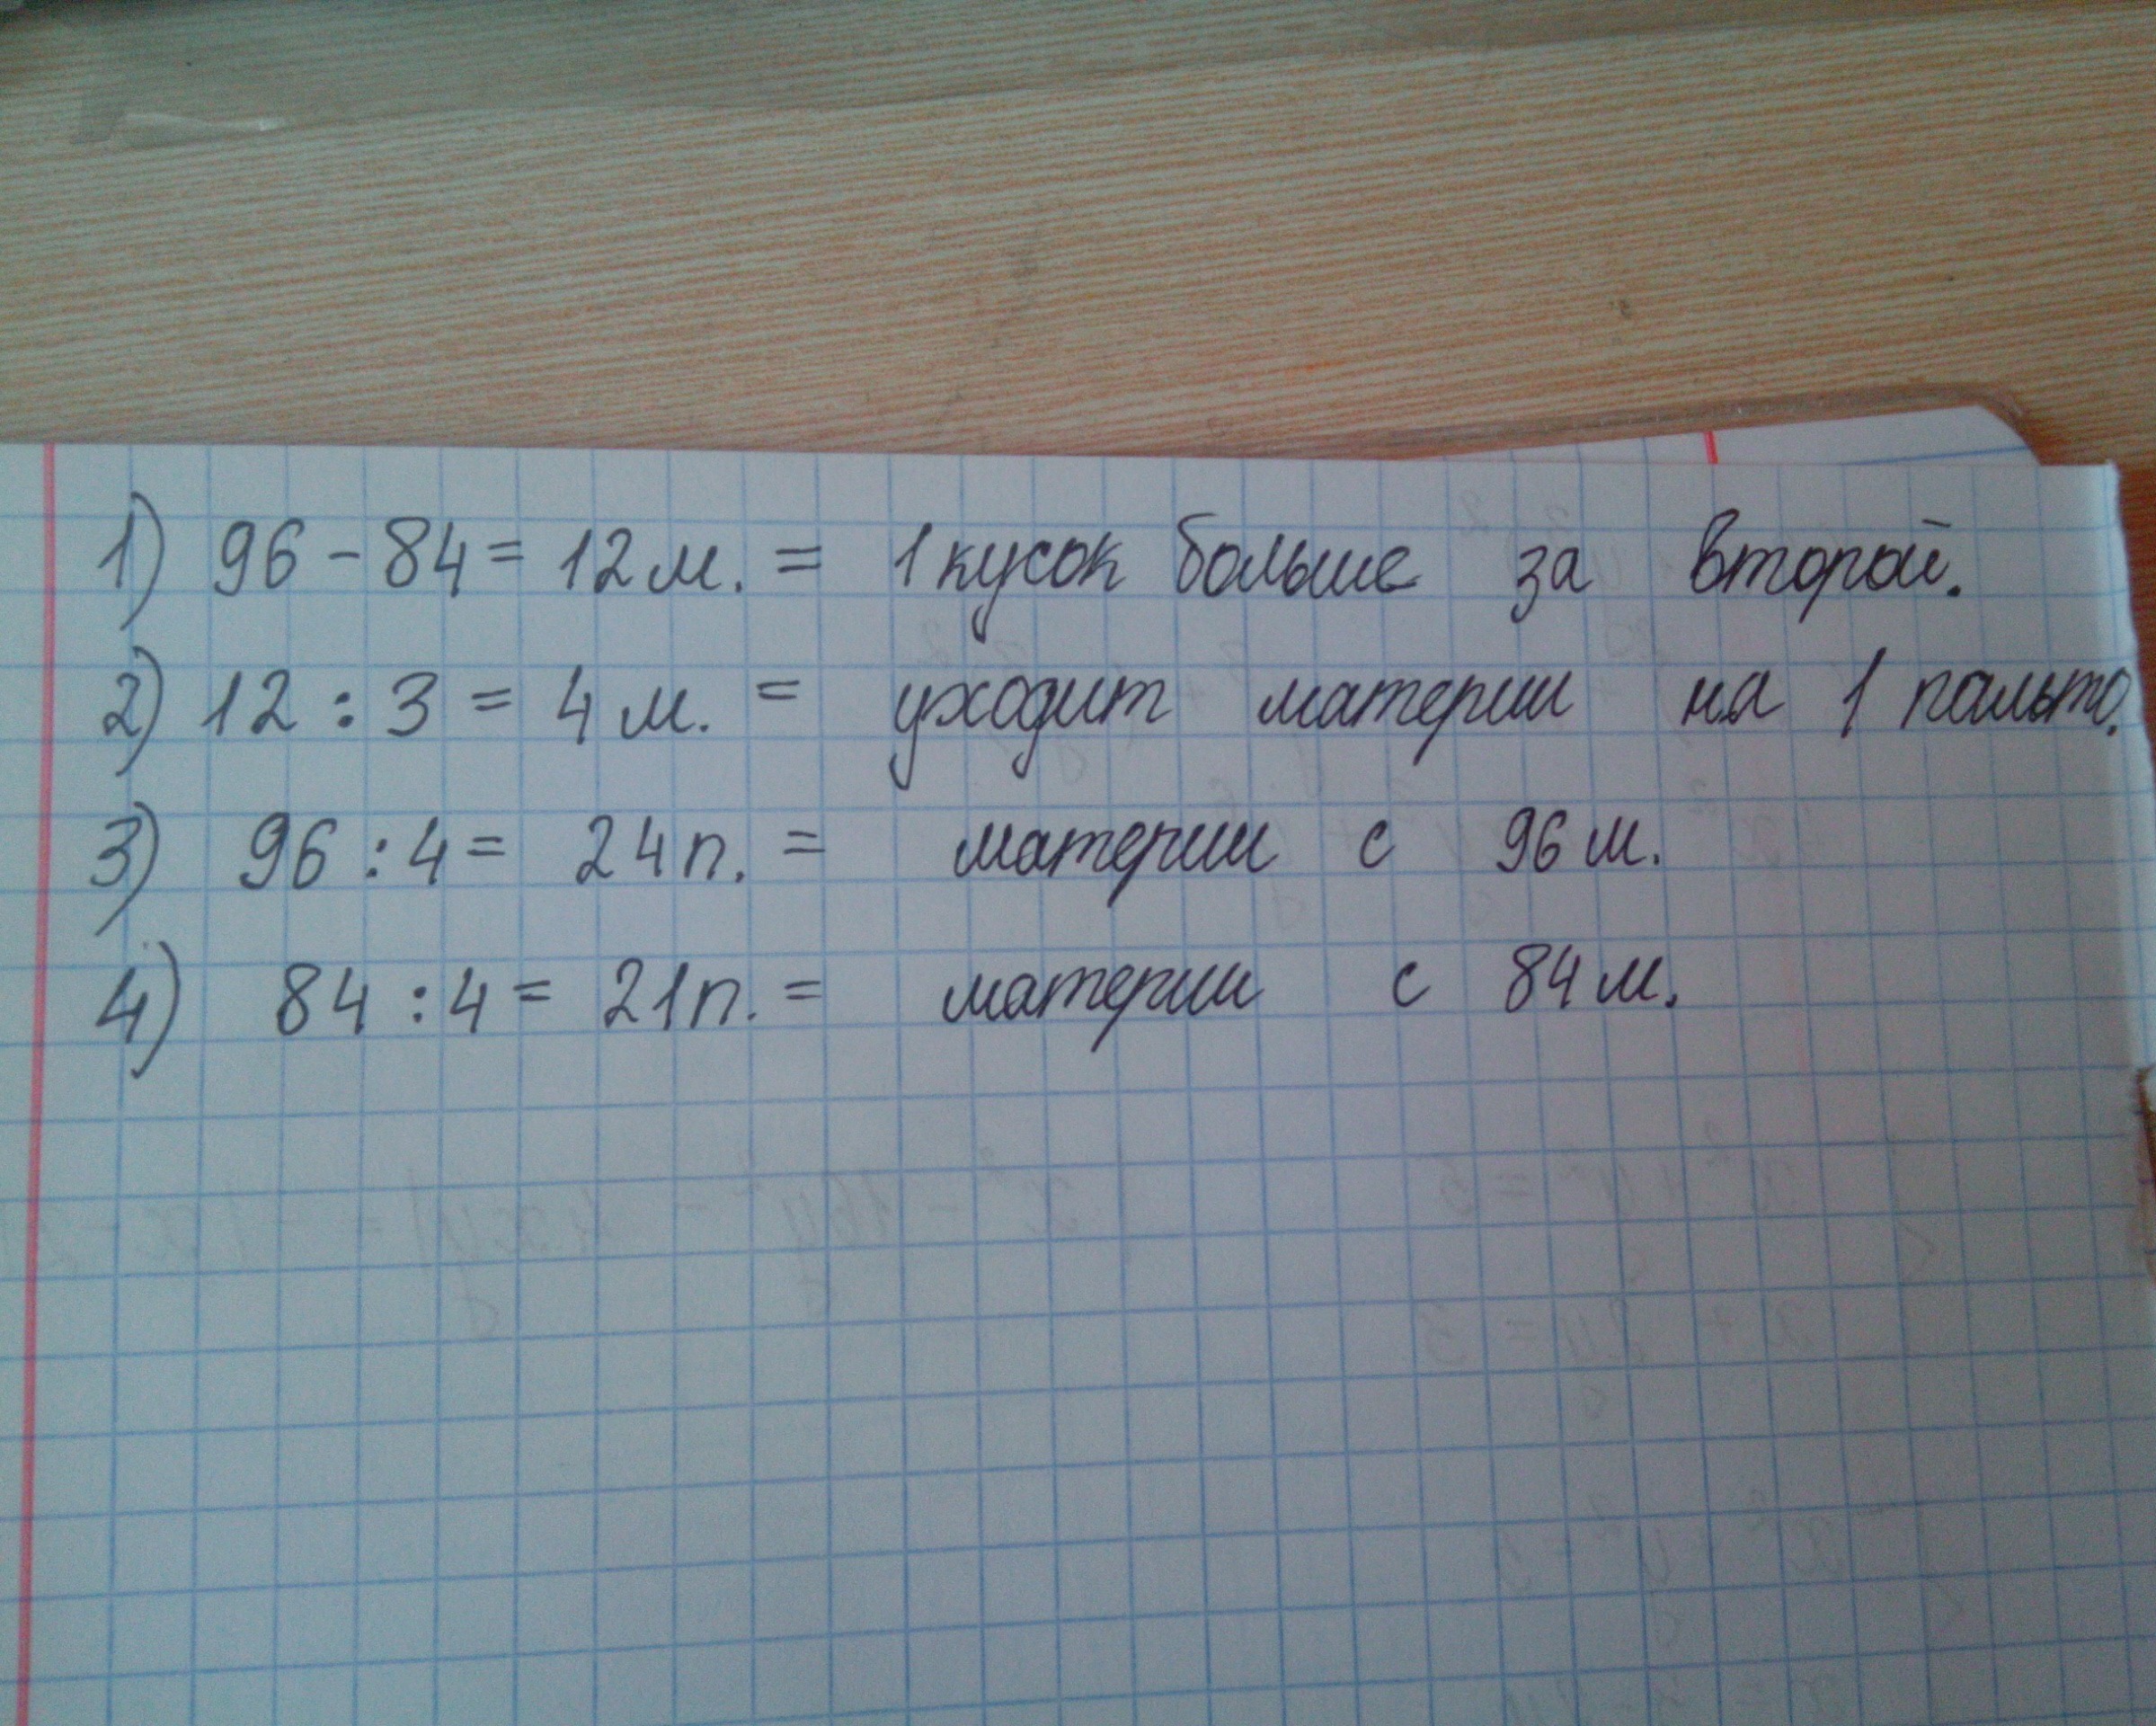 1) 96 - 84 = 12 м. = 1 кусок больше за второй.
2) 12 : 3 = 4 м. = уходит материи на 1 пальто.
3) 96 : 4 = 24 п. = материи с 96 м.
4) 84 : 4 = 21 п. = материи с 84 м.